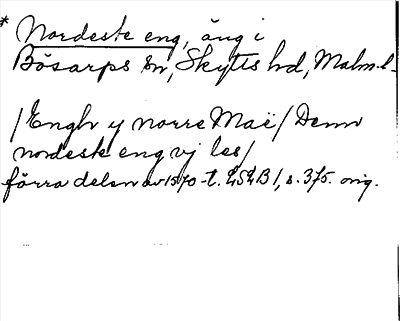 * Nordeste eng, äng i
Bösarps sn, Skytts hd, Malm.l.
/Engh y norre Maë/ Denn
nordeste eng vj les/
förra delen av 1570-t. LSLB 1, s. 375. orig.